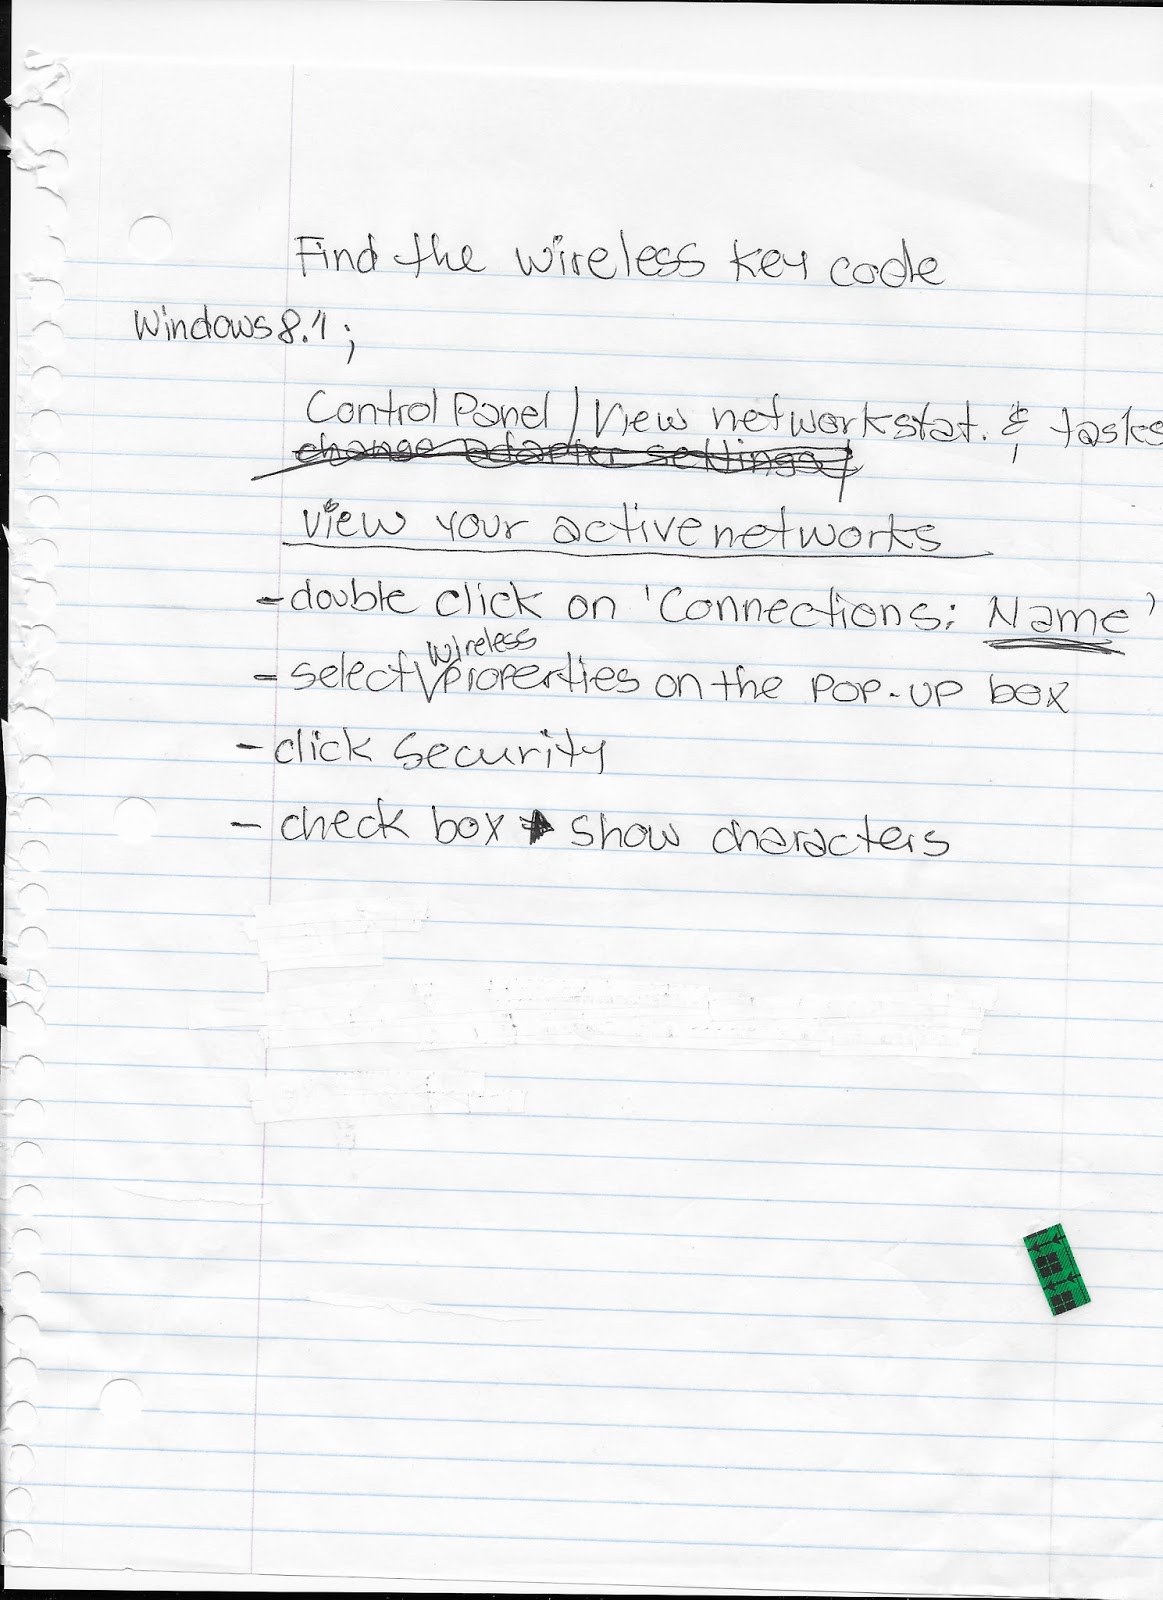 Find the wireless key code
Windows 8.1;
Control Panel / View network stat. & tasks
change adapter settings/
view your active networks
- double click on 'Connections: Name'
- select wireless properties on the pop-up box
- click security
- check box → show characters